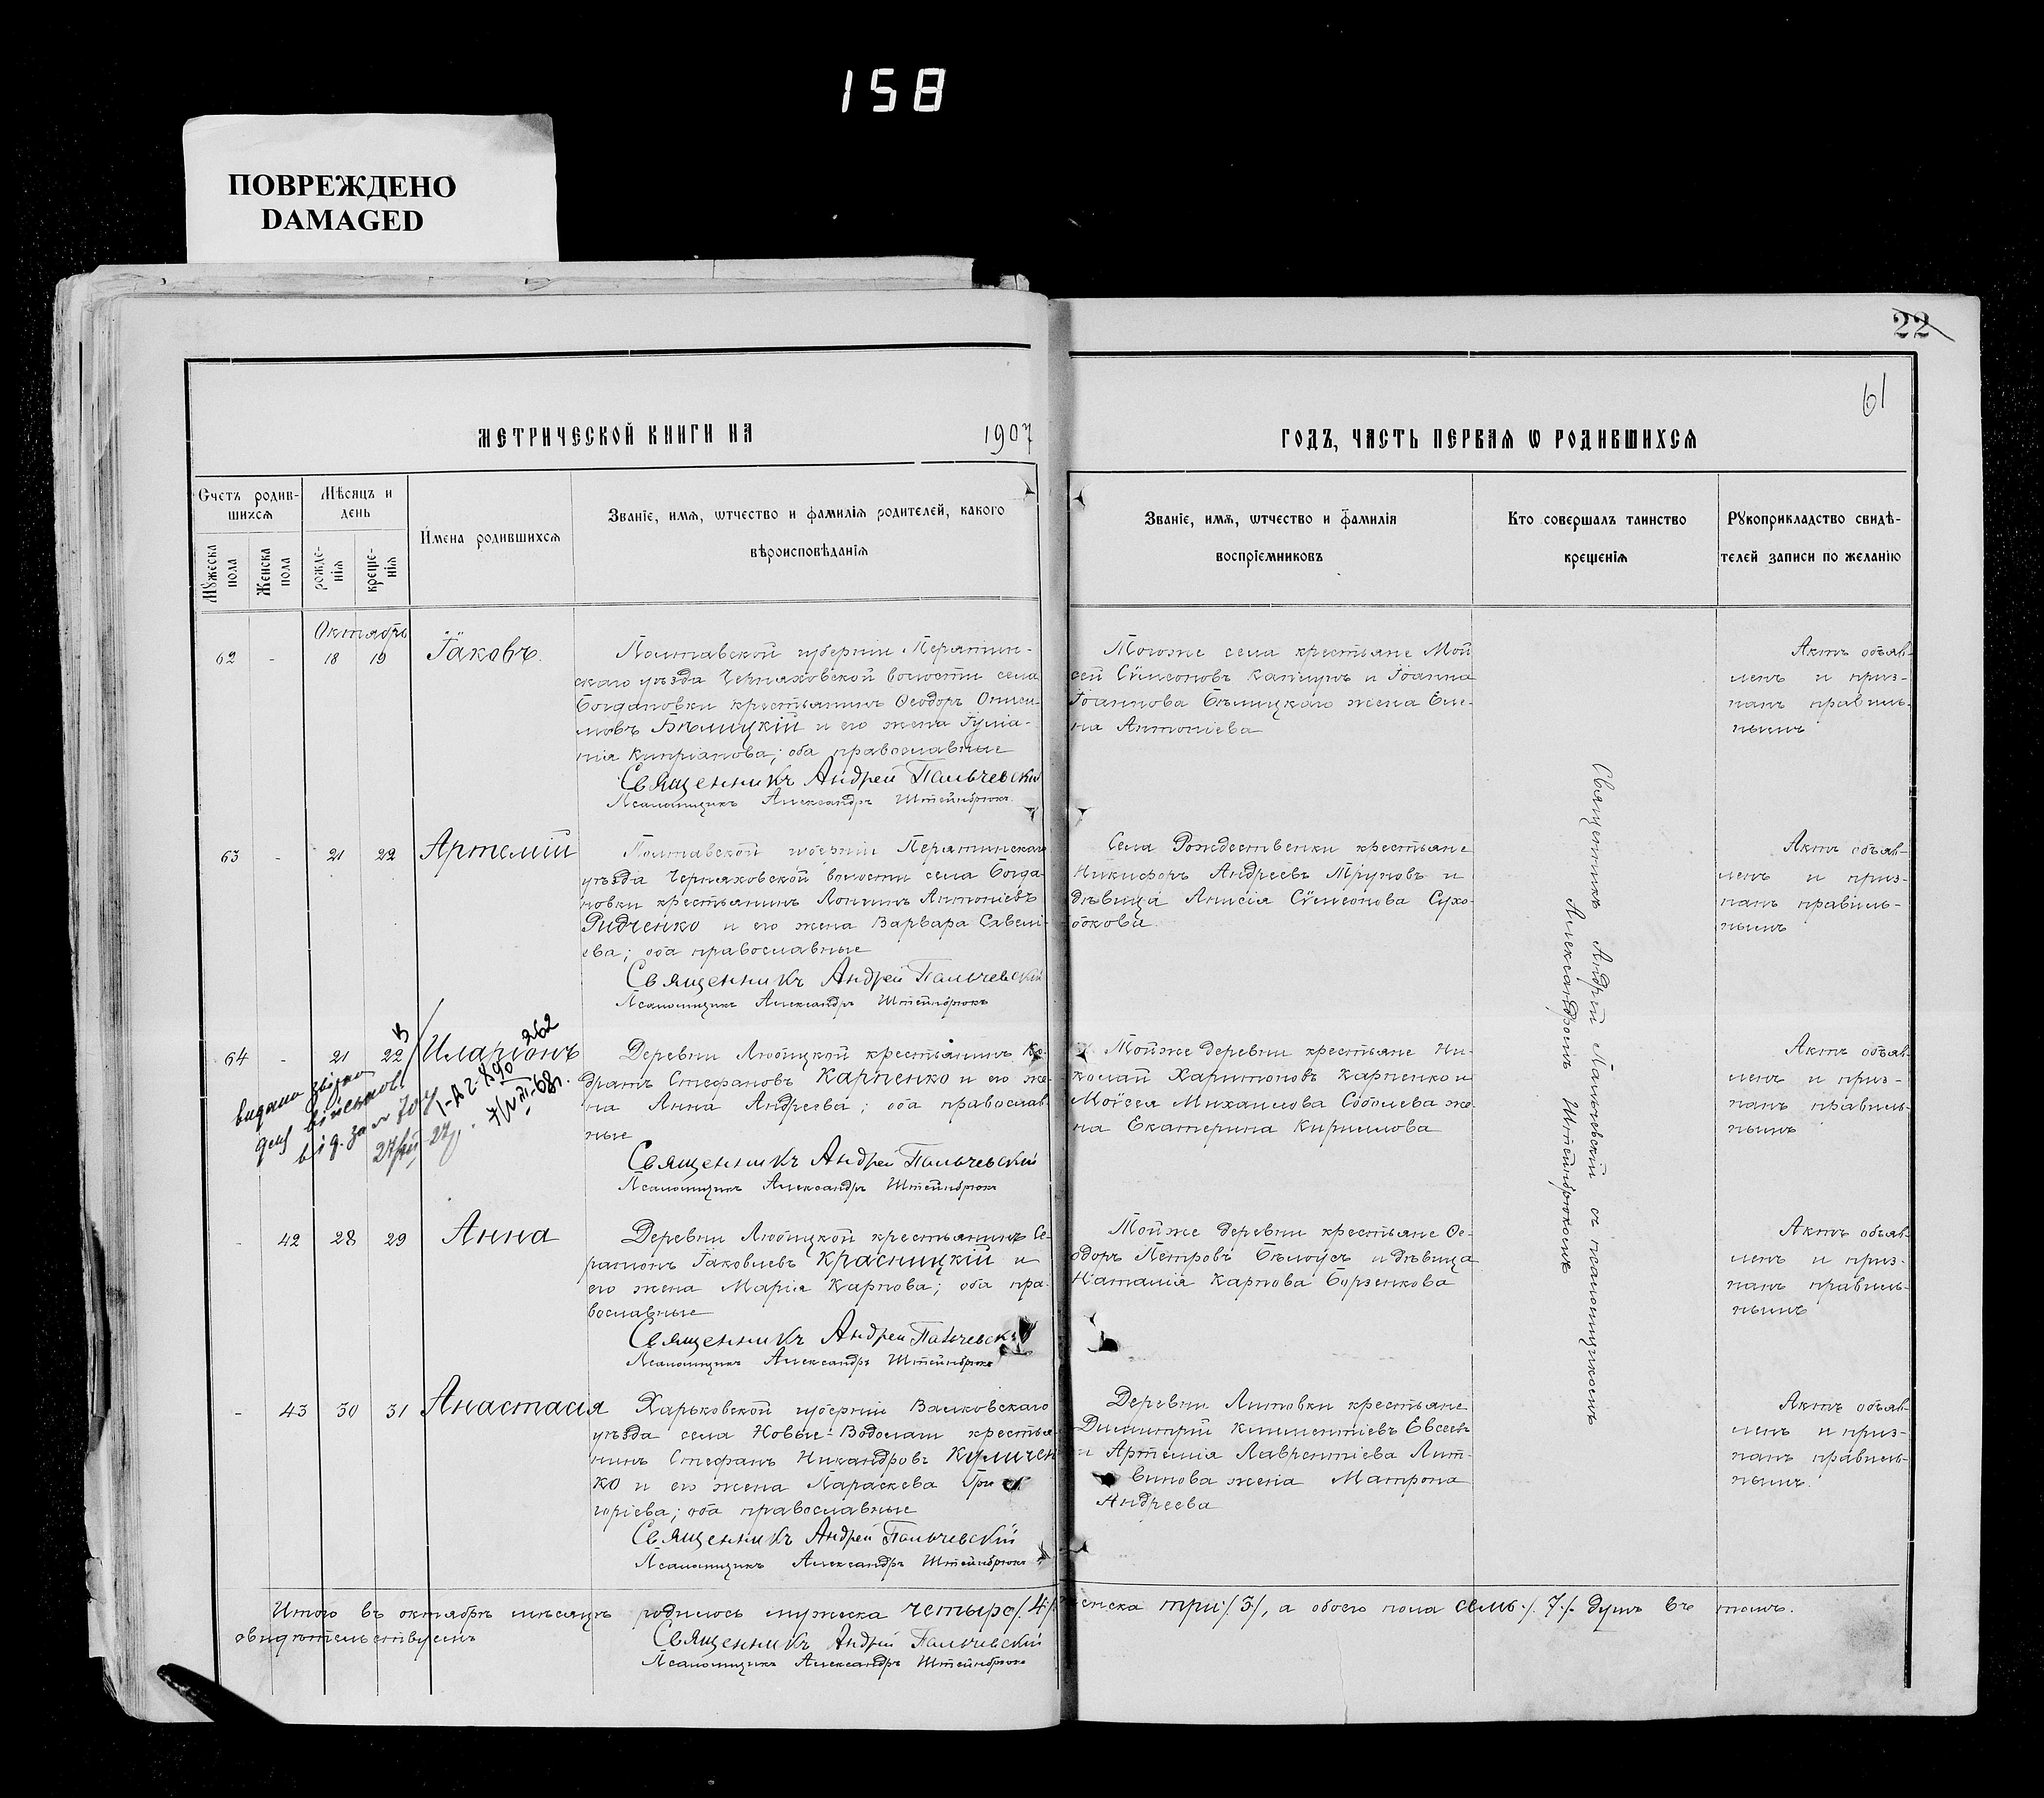 158
ПОВРЕЖДЕНО
DAMAGED
22
61
МЕТРИЧЕСКОЙ КНИГИ НА 1907
ГОДЪ, ЧАСТЬ ПЕРВАЯ Ѡ РОДИВШИХСЯ
Счетъ родив-
шихся
Мужеска пола
Женска пола
Мѣсяцъ и
день
рожде-
нія
креще-
нія
Имена родившихся
Званіе, имя, ѡтчество и фамилія родителей, какого
вѣроисповѣданія
Званіе, имя, ѡтчество и фамилія
воспріемниковъ
Кто совершалъ таинство
крещенія
Рукоприкладство свидѣ-
телей записи по желанію
Октябрь
62 - 18 19 Іаковъ.
Полтавской губерніи Пирятин-
скаго уѣзда Черняховской волости села
Богдановки крестьянинъ Ѳеодоръ Ониси-
мовъ Бѣлицкій и его жена Іулiа-
нія Кипріанова; оба православные
Священникъ Андрей Пальчевскій
Псаломщикъ Александръ Штейнбрюкъ.
Тогоже села крестьяне Мой
сей Сѵмеоновъ Капцунъ и Іоанна
Іоаннова Бѣлицкаго жена Еле-
на Антоніева
Актъ объяв-
ленъ и приз-
нанъ правиль-
нымъ
63 - 21 22 Артемій
Полтавской губерніи Пирятинскаго
уѣзда Черняховской волости села Богда-
новки крестьянинъ Логгинъ Антоніевъ
Ридченко и его жена Варвара Савелі-
ева; оба православные
Священникъ Андрей Пальчевскій
Псаломщикъ Александръ Штейнбрюкъ
Села Рождественки крестьяне
Никифоръ Андреевъ Труновъ и
дѣвица Анисія Сѵмеонова Сухо-
бокова.
Актъ объяв-
ленъ и приз-
нанъ правиль-
нымъ
64 - 21 22 Иларіонъ
видано
262
Деревни Любицкой крестьянинъ Ко-
дратъ Стефановъ Карпенко и его же-
на Анна Андреева; оба православ-
ные
Священникъ Андрей Пальчевскій
Псаломщикъ Александръ Штейнбрюкъ
Тойже деревни крестьяне Ни-
колай Харитоновъ Карпенко и
Моѵсея Михаилова Соболева же-
на Екатерина Кириллова
Актъ объяв-
ленъ и приз-
нанъ правиль-
нымъ
- 42 28 29 Анна
Деревни Любицкой крестьянинъ Се-
рапіонъ Іаковлевъ Красницкій и
его жена Марія Карпова; оба пра-
вославные
Священникъ Андрей Пальчевскій
Псаломщикъ Александръ Штейнбрюкъ
Тойже деревни крестьяне Ѳе-
одоръ Петровъ Бѣлоусъ и дѣвица
Наталія Карпова Борзенкова
Актъ объяв-
ленъ и приз-
нанъ правиль-
нымъ
- 43 30 31 Анастасія
Харьковской губерніи Валковскаго
уѣзда села Новые-Водолаги крестья-
нинъ Стефанъ Никандровъ Куличен
ко и его жена Параскева Гри
горіева; оба православные
Священникъ Андрей Пальчевскій
Псаломщикъ Александръ Штейнбрюкъ
Деревни Литовки крестьяне
Димитрій Климентіевъ Евсеевъ
и Артемія Лаврентіева Лит-
винова жена Матрона
Андреева
Актъ объяв-
ленъ и приз-
нанъ правиль-
нымъ.
Священникъ Андрей Пальчевскій съ псаломщикомъ
Александромъ Штейнбрюкомъ
Итого въ октябрѣ мѣсяцѣ родилось мужеска четыре /.4/. женска три /.3/., а обоего пола семь /.7./ душъ въ томъ.
свидѣтельствуемъ
Священникъ Андрей Пальчевскій
Псаломщикъ Александръ Штейнбрюкъ